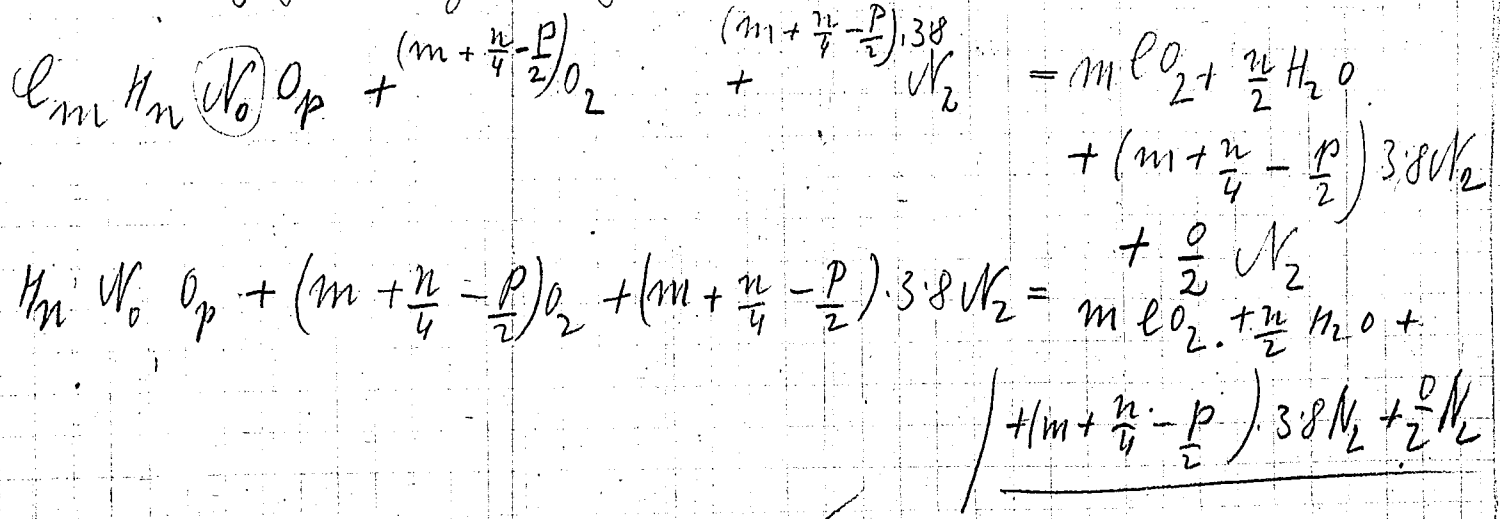 C_m H_n N_o O_p + (m + n/4 - p/2) O_2 + (m + n/4 - p/2).38 N_2 = m CO_2 + n/2 H_2O
+ (m + n/4 - p/2) 3.8 N_2
+ o/2 N_2
H_n N_o O_p + (m + n/4 - p/2) O_2 + (m + n/4 - p/2).3.8 N_2 = m CO_2. + n/2 H_2O +
+(m + n/4 - p/2).3.8 N_2 + o/2 N_2